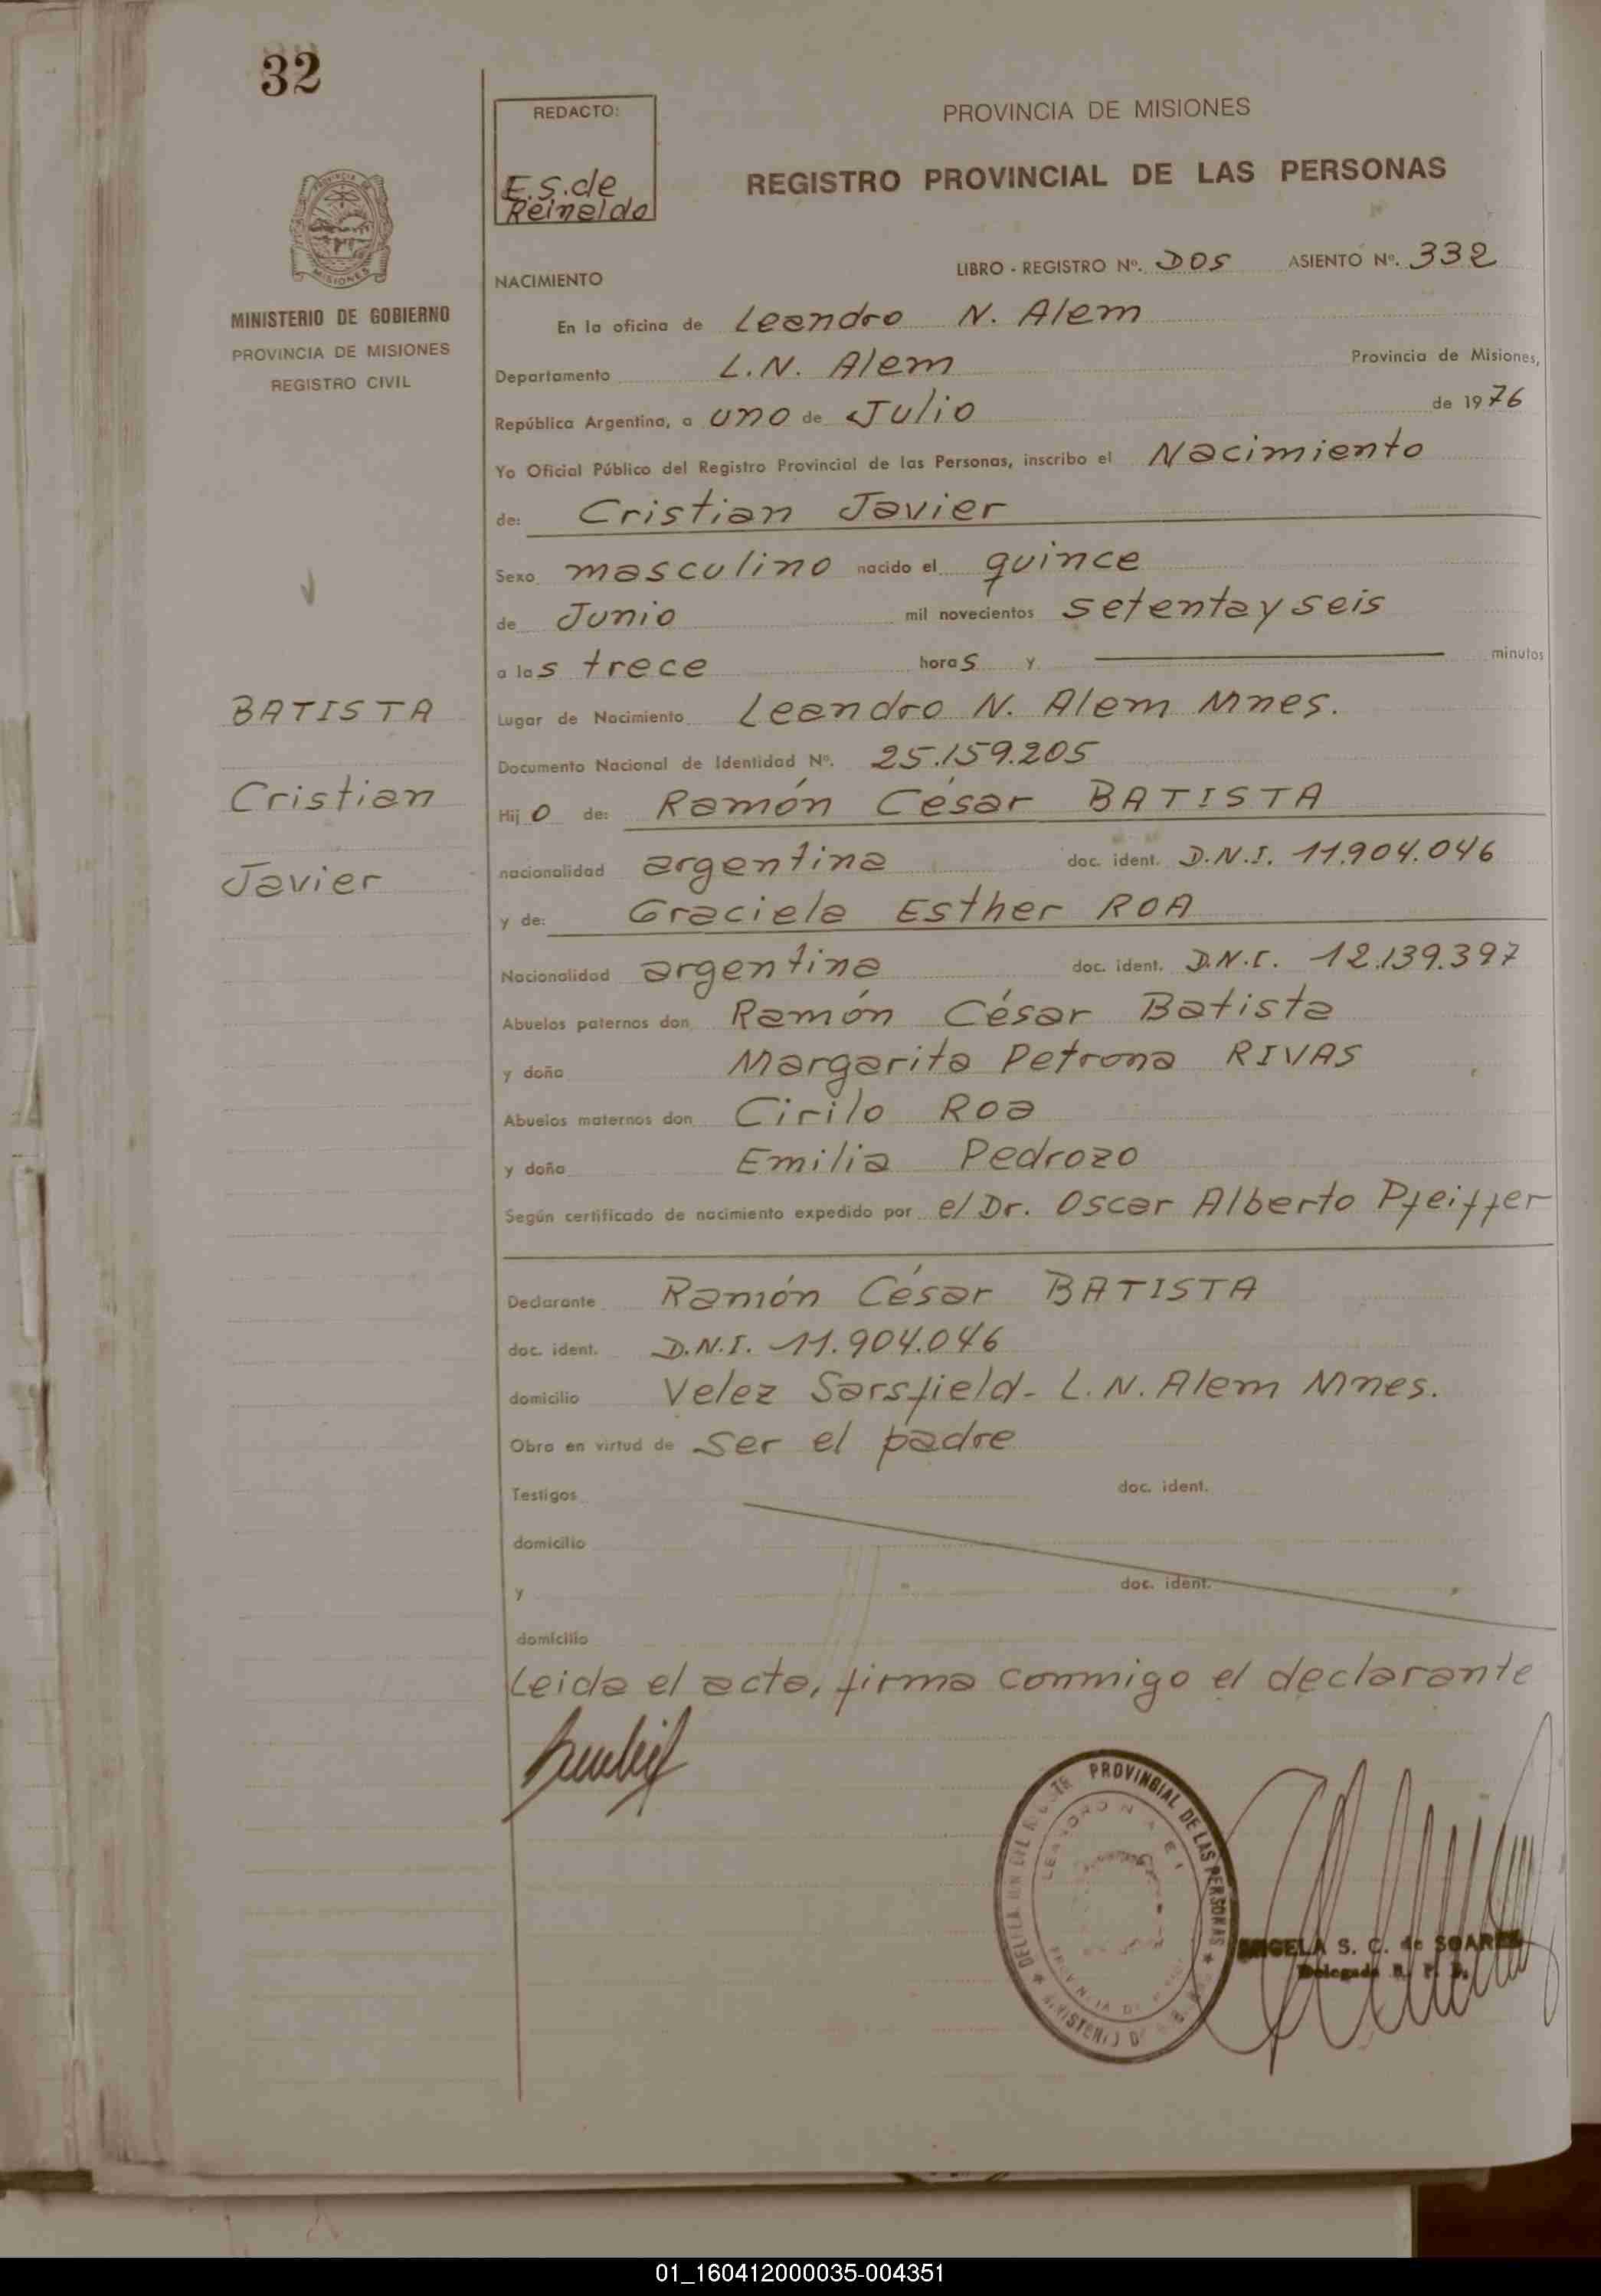 32
REDACTO:
E.S. de
Reineldo
PROVINCIA DE MISIONES
REGISTRO PROVINCIAL DE LAS PERSONAS
MINISTERIO DE GOBIERNO
PROVINCIA DE MISIONES
REGISTRO CIVIL
NACIMIENTO
LIBRO - REGISTRO Nº. DOS ASIENTO Nº. 332
En la oficina de Leandro N. Alem
Departamento L.N. Alem Provincia de Misiones,
República Argentina, a uno de Julio de 1976
Yo Oficial Público del Registro Provincial de las Personas, inscribo el Nacimiento
de: Cristian Javier
Sexo masculino nacido el quince
de Junio mil novecientos setenta y seis
a las trece horas y minutos
BATISTA
Cristian
Javier
Lugar de Nacimiento Leandro N. Alem Mnes.
Documento Nacional de Identidad Nº. 25.159.205
Hijo de: Ramón César BATISTA
nacionalidad argentina doc. ident. D.N.I. 11.904.046
y de: Graciela Esther ROA
Nacionalidad argentina doc. ident. D.N.I. 12.139.397
Abuelos paternos don Ramón César Batista
y doña Margarita Petrona RIVAS
Abuelos maternos don Cirilo Roa
y doña Emilia Pedrozo
Según certificado de nacimiento expedido por el Dr. Oscar Alberto Pfeiffer
Declarante Ramón César BATISTA
doc. ident. D.N.I. 11.904.046
domicilio Velez Sarsfield - L.N. Alem Mnes.
Obra en virtud de Ser el padre
Testigos doc. ident.
domicilio
y doc. ident.
domicilio
Leida el acta, firma conmigo el declarante
PROVINCIAL DE LAS PERSONAS
S. C. de SOARES
Delegada R. P. P.
01_160412000035-004351